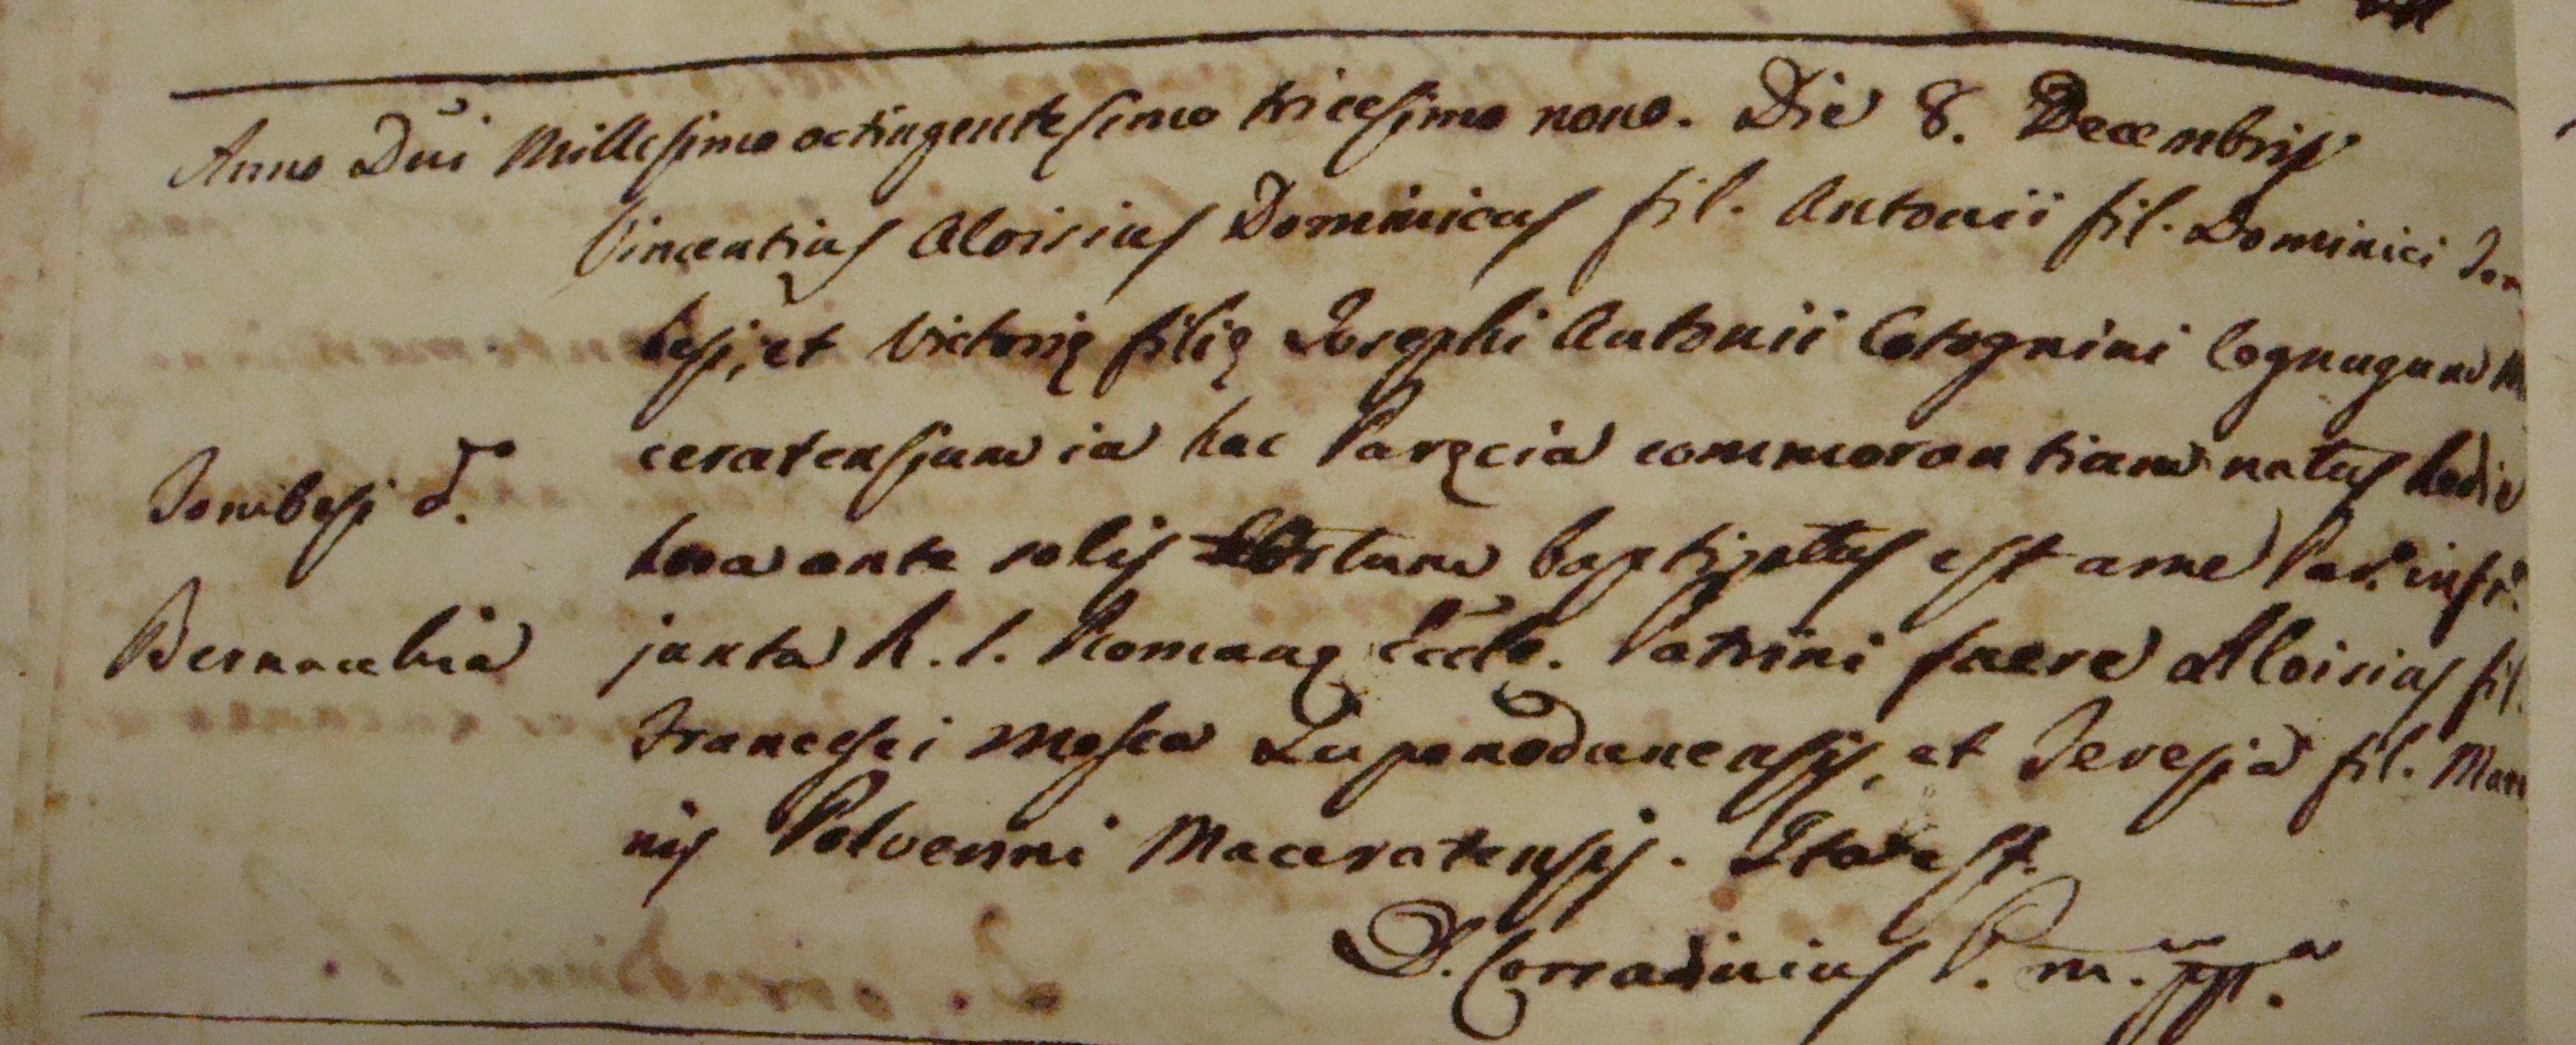 Anno Dñi Millesimo octingentesimo tricesimo nono. Die 8. Decembris
Vincentius Aloisius Dominicus fil. Antonii fil. Dominici Tom
besi, et Victorię filię Josephi Antonii Cotognini Cognugum Ma
ceratensium in hac Paręcia commorantium natus hodie
Tombesi d.
hora ante solis ortum baptizatus est a me Par. infr.
Bernacchia
juxta R. S. Romanę Eccle. Patrini fuere Aloisius fil.
Francesci Mosca Lupanodunensis, et Teresia fil. Mari
nis Polverini Maceratensis. Ita est.
D. Corradinius P. m. pp.a